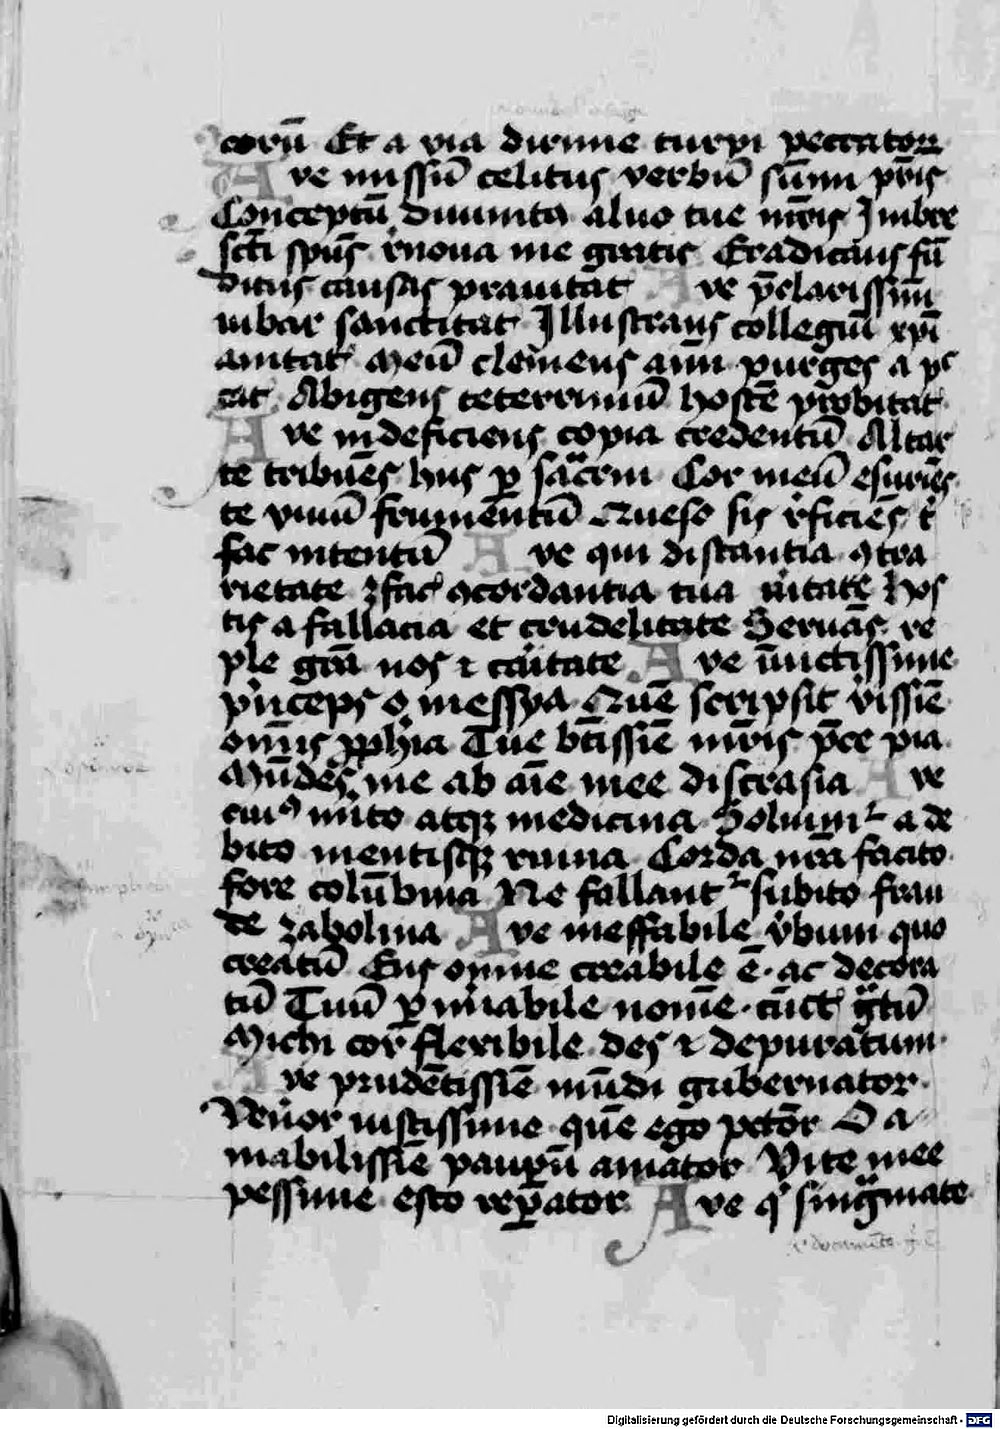 corū Et a via dirimie turpi peccatoꝝ
Ave missū celitus verbū sūmi pr̄is
Conceptū diuinita aluo tue mr̄is Jmbre
scti spūs rͥnoua me gratis Eradicans fū
ditus causas prauitat Ave p̄clarissim̄
iubar sanctitat Jllustrans collegiū xpī
anitat Meū clemens aīm purges a pc̄
cat Abigens teterrimū hostē probitat
Ave indeficiens copia credentū Altar
te tribuēs hiis ꝑ sacrm Cor meū esuriēs
te viuū frumentū Queso sis rͥficiēs
fac intentū Ave qui distantia ꝯtra
rietate ꝯcordantia tua vͥitate Hos
tis a fallacia et crudelitate Seruās re
ple grā nos ⁊ caͥitate Ave īuictissime
pͥnceps o messya Quē scripsit vͥissiē
om̄is ꝓphia Tue bt̄issiē mr̄is p̄ce pia
Mūdes me ab aīe mee discrasia Ave
cuiꝰ nūto atqꝫ medicina Soluim̄ᷣ a de
bito mentisqꝫ ruina Corda nr̄a facito
fore colūbina Ne fallantᷣ subito frau
de zabolina Ave ineffabile vͥbum quo
creatū Ens omne creabile ē ac decora
tū Tuū ꝑ mͥabile nomē cūct gͣtū
Michi cor flexibile des ⁊ depuratum
Ave prudētissiē mūdi gubernator
Ven̄or iustissime quē ego pctōr O a
mabilissiē pauꝑū amator Vite mee
pessime esto reꝑator Ave qͥ singͣmate
documēto
Digitalisierung gefördert durch die Deutsche Forschungsgemeinschaft - DFG